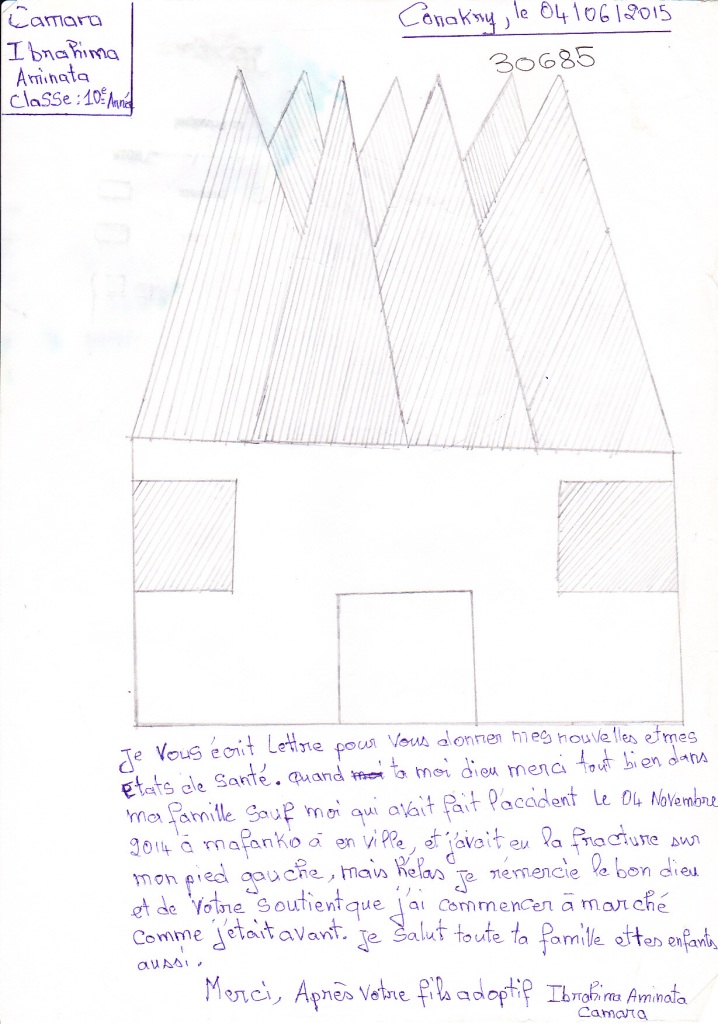 Camara
Ibrahima
Aminata
Classe : 10e Année
Conakry, le 04/06/2015
30685
Je vous écrit lettre pour vous donner mes nouvelles et mes
Etats de santé. quand moi ta moi dieu merci tout bien dans
ma famille sauf moi qui avait fait l'accident le 04 Novembre
2014 à mafanko à en ville, et j'avait eu la fracture sur
mon pied gauche, mais hélas je rémercie le bon dieu
et de votre soutient que j'ai commencer à marché
comme j'etait avant. je salut toute ta famille et tes enfants
aussi.
Merci, Après votre fils adoptif Ibrahima Aminata
Camara